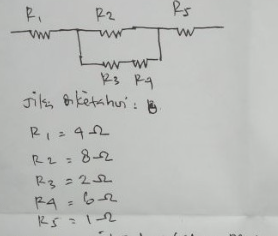 R1 R2 R5
R3 R4
Jika diketahui :
R1 = 4 Ω
R2 = 8 Ω
R3 = 2 Ω
R4 = 6 Ω
R5 = 1 Ω